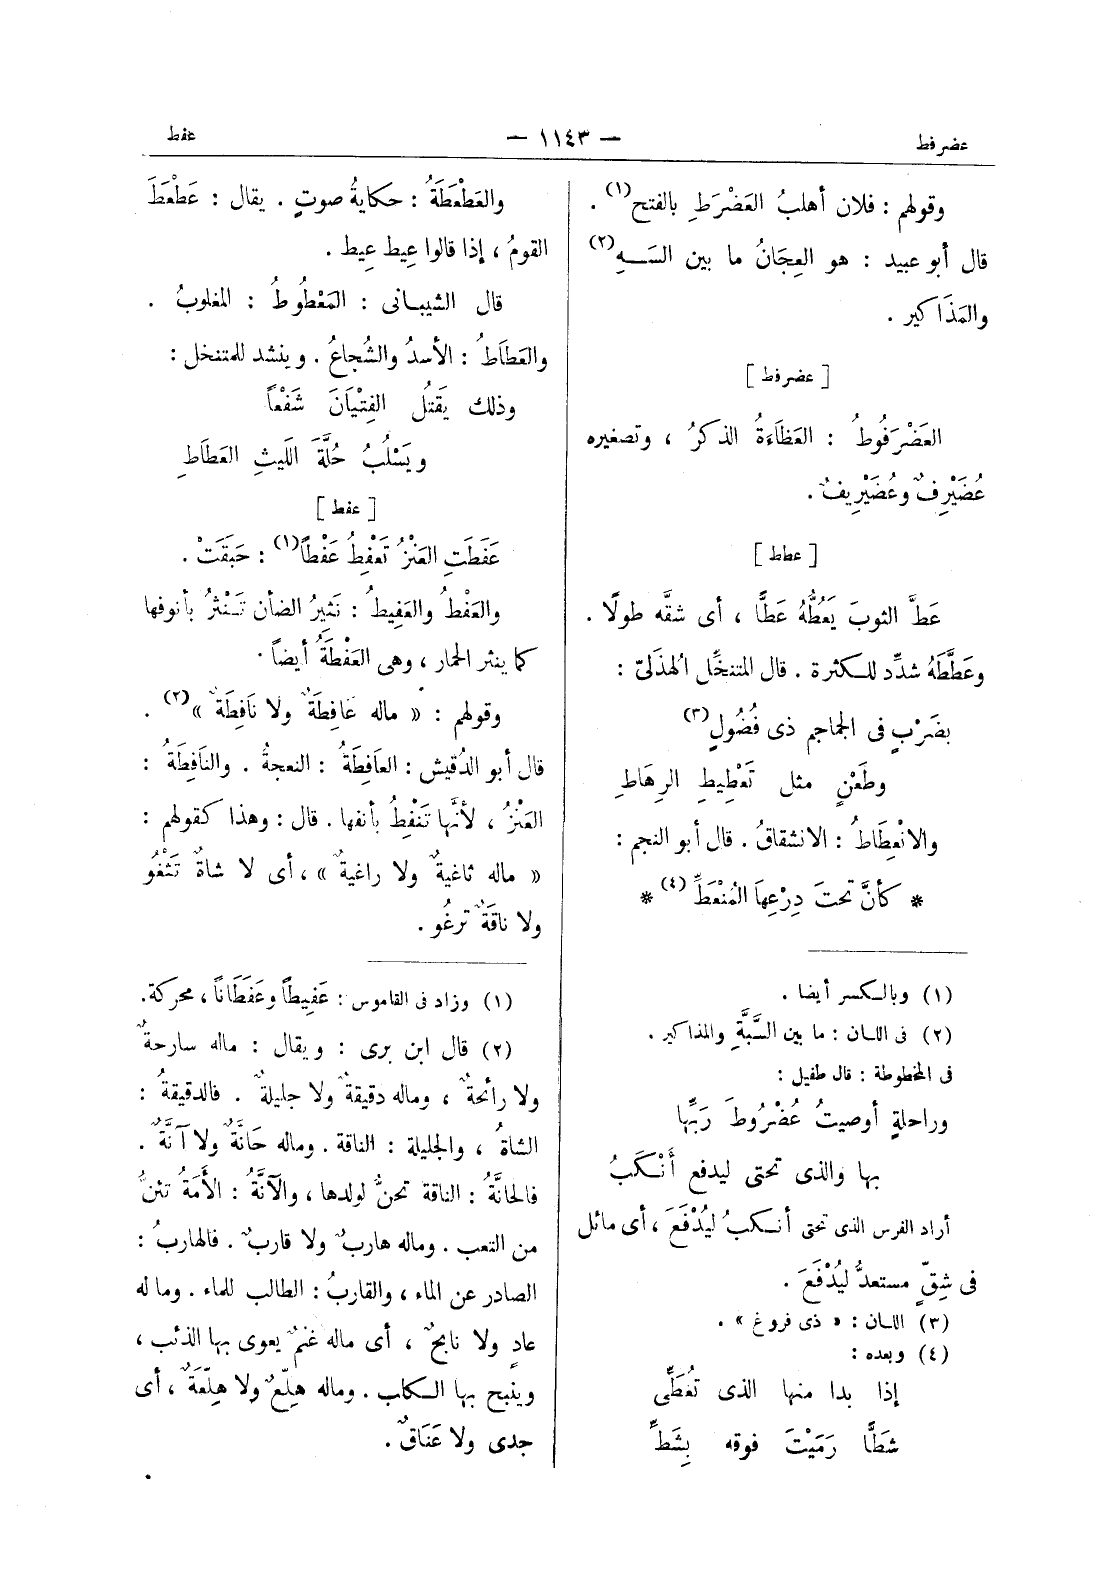 عضرفط
— ١١٤٣ —
عفط
وقولهم : فلان أهلبُ العَضْرَطِ بالفتح(١) .
قال أبو عبيد : هو العِجَانُ ما بين السَـهِ(٢)
والمَذَاكير .
[ عضرفط ]
العَضْرَفُوطُ : العَظَاءَةُ الذكرُ ، وتصغيره
عُضَيْرِفٌ وعُضَيْرِيفٌ .
[ عطط ]
عَطَّ الثوبَ يَعُطُّهُ عَطًّا ، أى شقَّه طولًا .
وعَطَّطَهُ شدِّد للكثرة . قال المتنخِّل الهذلىّ :
بضَرْبٍ فى الجماجم ذى فُضُولٍ(٣)
وطَعْنٍ مثل تَعْطِيطِ الرِهَاطِ
والانْعِطَاطُ : الانشقاقُ . قال أبو النجم :
* كأنَّ تحتَ دِرْعِهَا المُنْعَطِّ(٤) *
(١) وبالكسر أيضا .
(٢) فى اللسان : ما بين السَّبَّةِ والمذاكير .
فى المخطوطة : قال طفيل :
وراحلةٍ أوصيتُ عُضْرُوطَ رَبِّها
بها والذى تحتى ليدفع أَنْكَبُ
أراد الفرس الذى تحتى أنكبُ ليُدْفَعَ ، أى مائل
فى شِقٍّ مستعدٌّ ليُدْفَعَ .
(٣) اللسان : « ذى فروغ » .
(٤) وبعده :
إذا بدا منها الذى تُغَطِّى
شَطًّا رَمَيْتَ فوقه بِشَطِّ
والعَطْعَطَةُ : حكايةُ صوتٍ . يقال : عَطْعَطَ
القومُ ، إذا قالوا عِيط عِيط .
قال الشيبانى : المَعْطُوطُ : المغلوبُ .
والعَطَاطُ : الأسدُ والشُجاعُ . وينشد للمتنخل :
وذلك يَقْتُلُ الفِتْيَانَ شَفْعاً
ويَسْلُبُ حُلَّةَ اللَيثِ العَطَاطِ
[ عفط ]
عَفَطَتِ العَنْزُ تَعْفِطُ عَفْطاً(١) : حَبَقَتْ .
والعَفْطُ والعَفِيطُ : نَثيرُ الضأن تَـنْثرُ بأنوفها
كما ينثر الحمار ، وهى العَفْطَةُ أيضاً .
وقولهم : « ماله عَافِطَةٌ ولا نَافِطَةٌ »(٢) .
قال أبو الدُقَيش : العاَفِطَةُ : النعجةُ . والناَفِطَةُ :
العَنْزُ ، لأنَّها تَنْفِطُ بأنفها . قال : وهذا كقولهم :
« ماله ثاغيةٌ ولا راغيةٌ » ، أى لا شاةٌ تَثْغُو
ولا ناقةٌ ترغُو .
(١) وزاد فى القاموس : عَفِيطاً وعَفَطَاناً ، محركة.
(٢) قال ابن برى : ويقال : ماله سارحةٌ
ولا رائحةٌ ، وماله دقيقةٌ ولا جليلةٌ . فالدقيقةُ :
الشاةُ ، والجليلة : الناقة . وماله حَانَّةٌ ولا آنَّةٌ .
فالحانَّةُ : الناقة تحنُّ لولدها ، والآنَّةُ : الأَمَةُ تئنُّ
من التعب . وماله هاربٌ ولا قاربٌ . فالهاربُ :
الصادر عن الماء ، والقاربُ : الطالب للماء . وما له
عاوٍ ولا نابحٌ ، أى ماله غنمٌ يعوى بها الذئب ،
وينبح بها الكلب . وماله هِلّعٌ ولا هِلّعَةٌ ، أى
جدى ولا عَنَاقٌ .